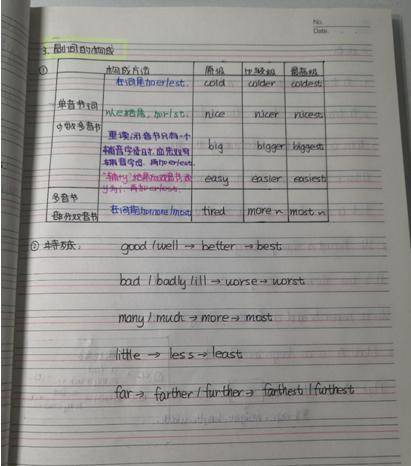 No.
Date.
3. 副词的构成
① 构成方法 原级 比较级 最高级
在词尾加er/est. cold colder coldest
单音节词 以e结尾, 加r/st. nice nicer nicest
少数多音节 重读闭音节只有一个
辅音字母时, 应先双写
辅音字母, 再加er/est. big bigger biggest
"辅+y"结尾 双音节 改
y为i, 再加er/est. easy easier easiest
多音节
部分双音节 在词前加more/most tired more ~ most ~
② 特殊: good / well → better → best
bad / badly / ill → worse → worst
many / much → more → most
little → less → least
far → farther / further → farthest / furthest